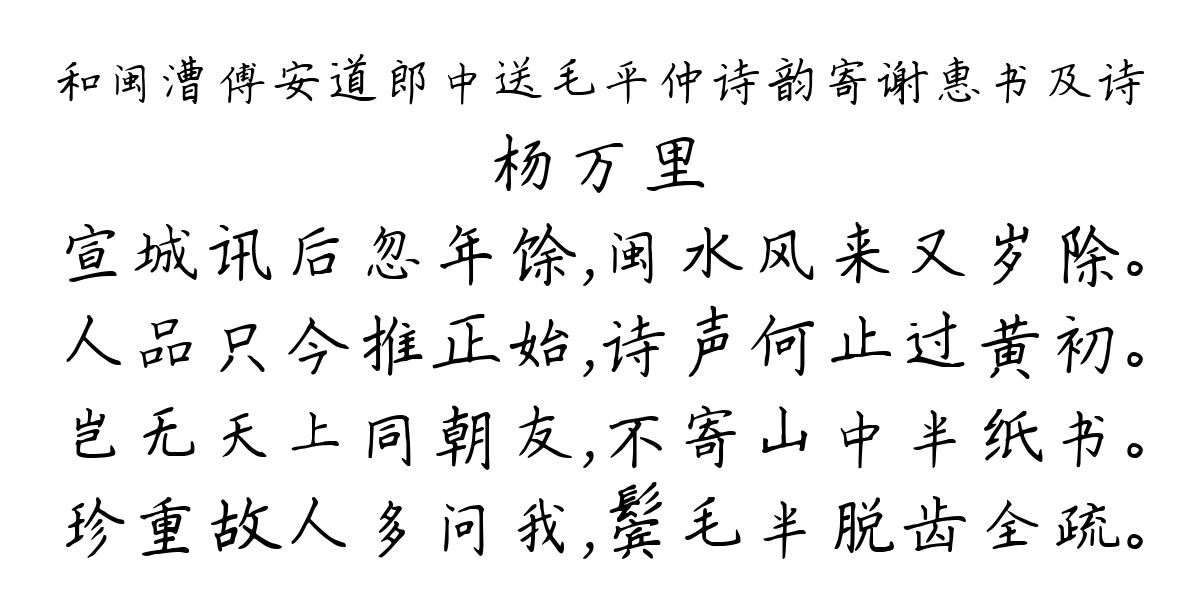 和闽漕傅安道郎中送毛平仲诗韵寄谢惠书及诗
杨万里
宣城讯后忽年馀,闽水风来又岁除。
人品只今推正始,诗声何止过黄初。
岂无天上同朝友,不寄山中半纸书。
珍重故人多问我,鬓毛半脱齿全疏。